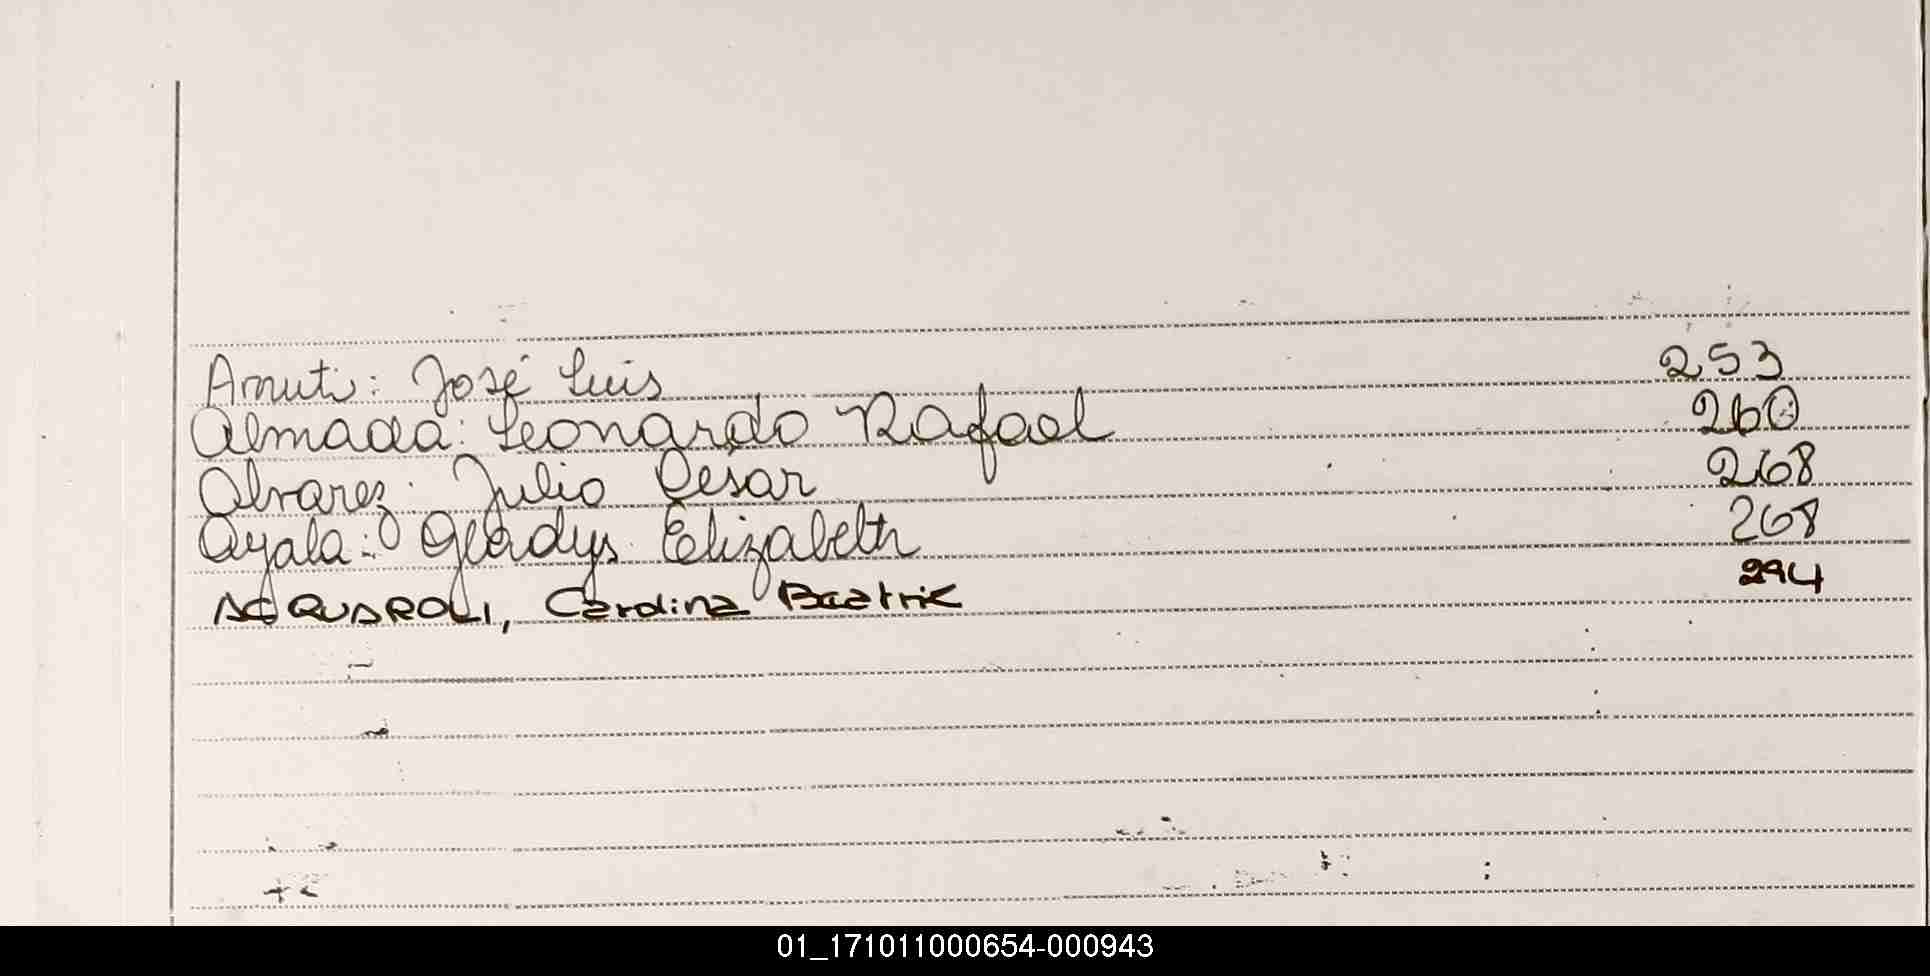 Arruti: José Luis 253
Almada: Leonardo Rafael 260
Alvarez: Julio Cesar 268
Ayala: Gladys Elizabeth 268
ACQUAROLI, Carolina Beatriz 294
01_171011000654-000943